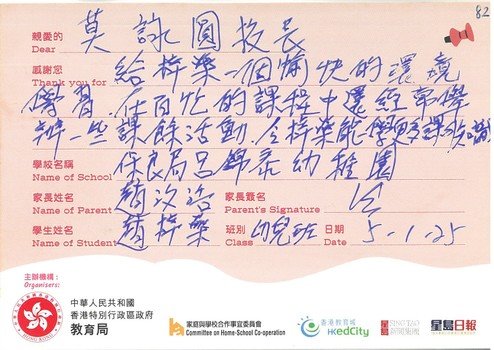 82
親愛的 莫詠圓校長
Dear
感謝您 給梓榮一個愉快的環境
Thank you for
學習,在百忙的課程中還經常舉
辦一些課餘活動,令梓榮能學更多課外知識
學校名稱 保良局呂錦泰幼稚園
Name of School
家長姓名 趙汝浩 家長簽名
Name of Parent Parent's Signature
學生姓名 趙梓榮 班別 幼兒班 日期 5-1-25
Name of Student Class Date
主辦機構:
Organisers:
中華人民共和國
香港特別行政區政府
教育局
家庭與學校合作事宜委員會
Committee on Home-School Co-operation
香港教育城
HKedCity
SING TAO
新聞集團
星島日報